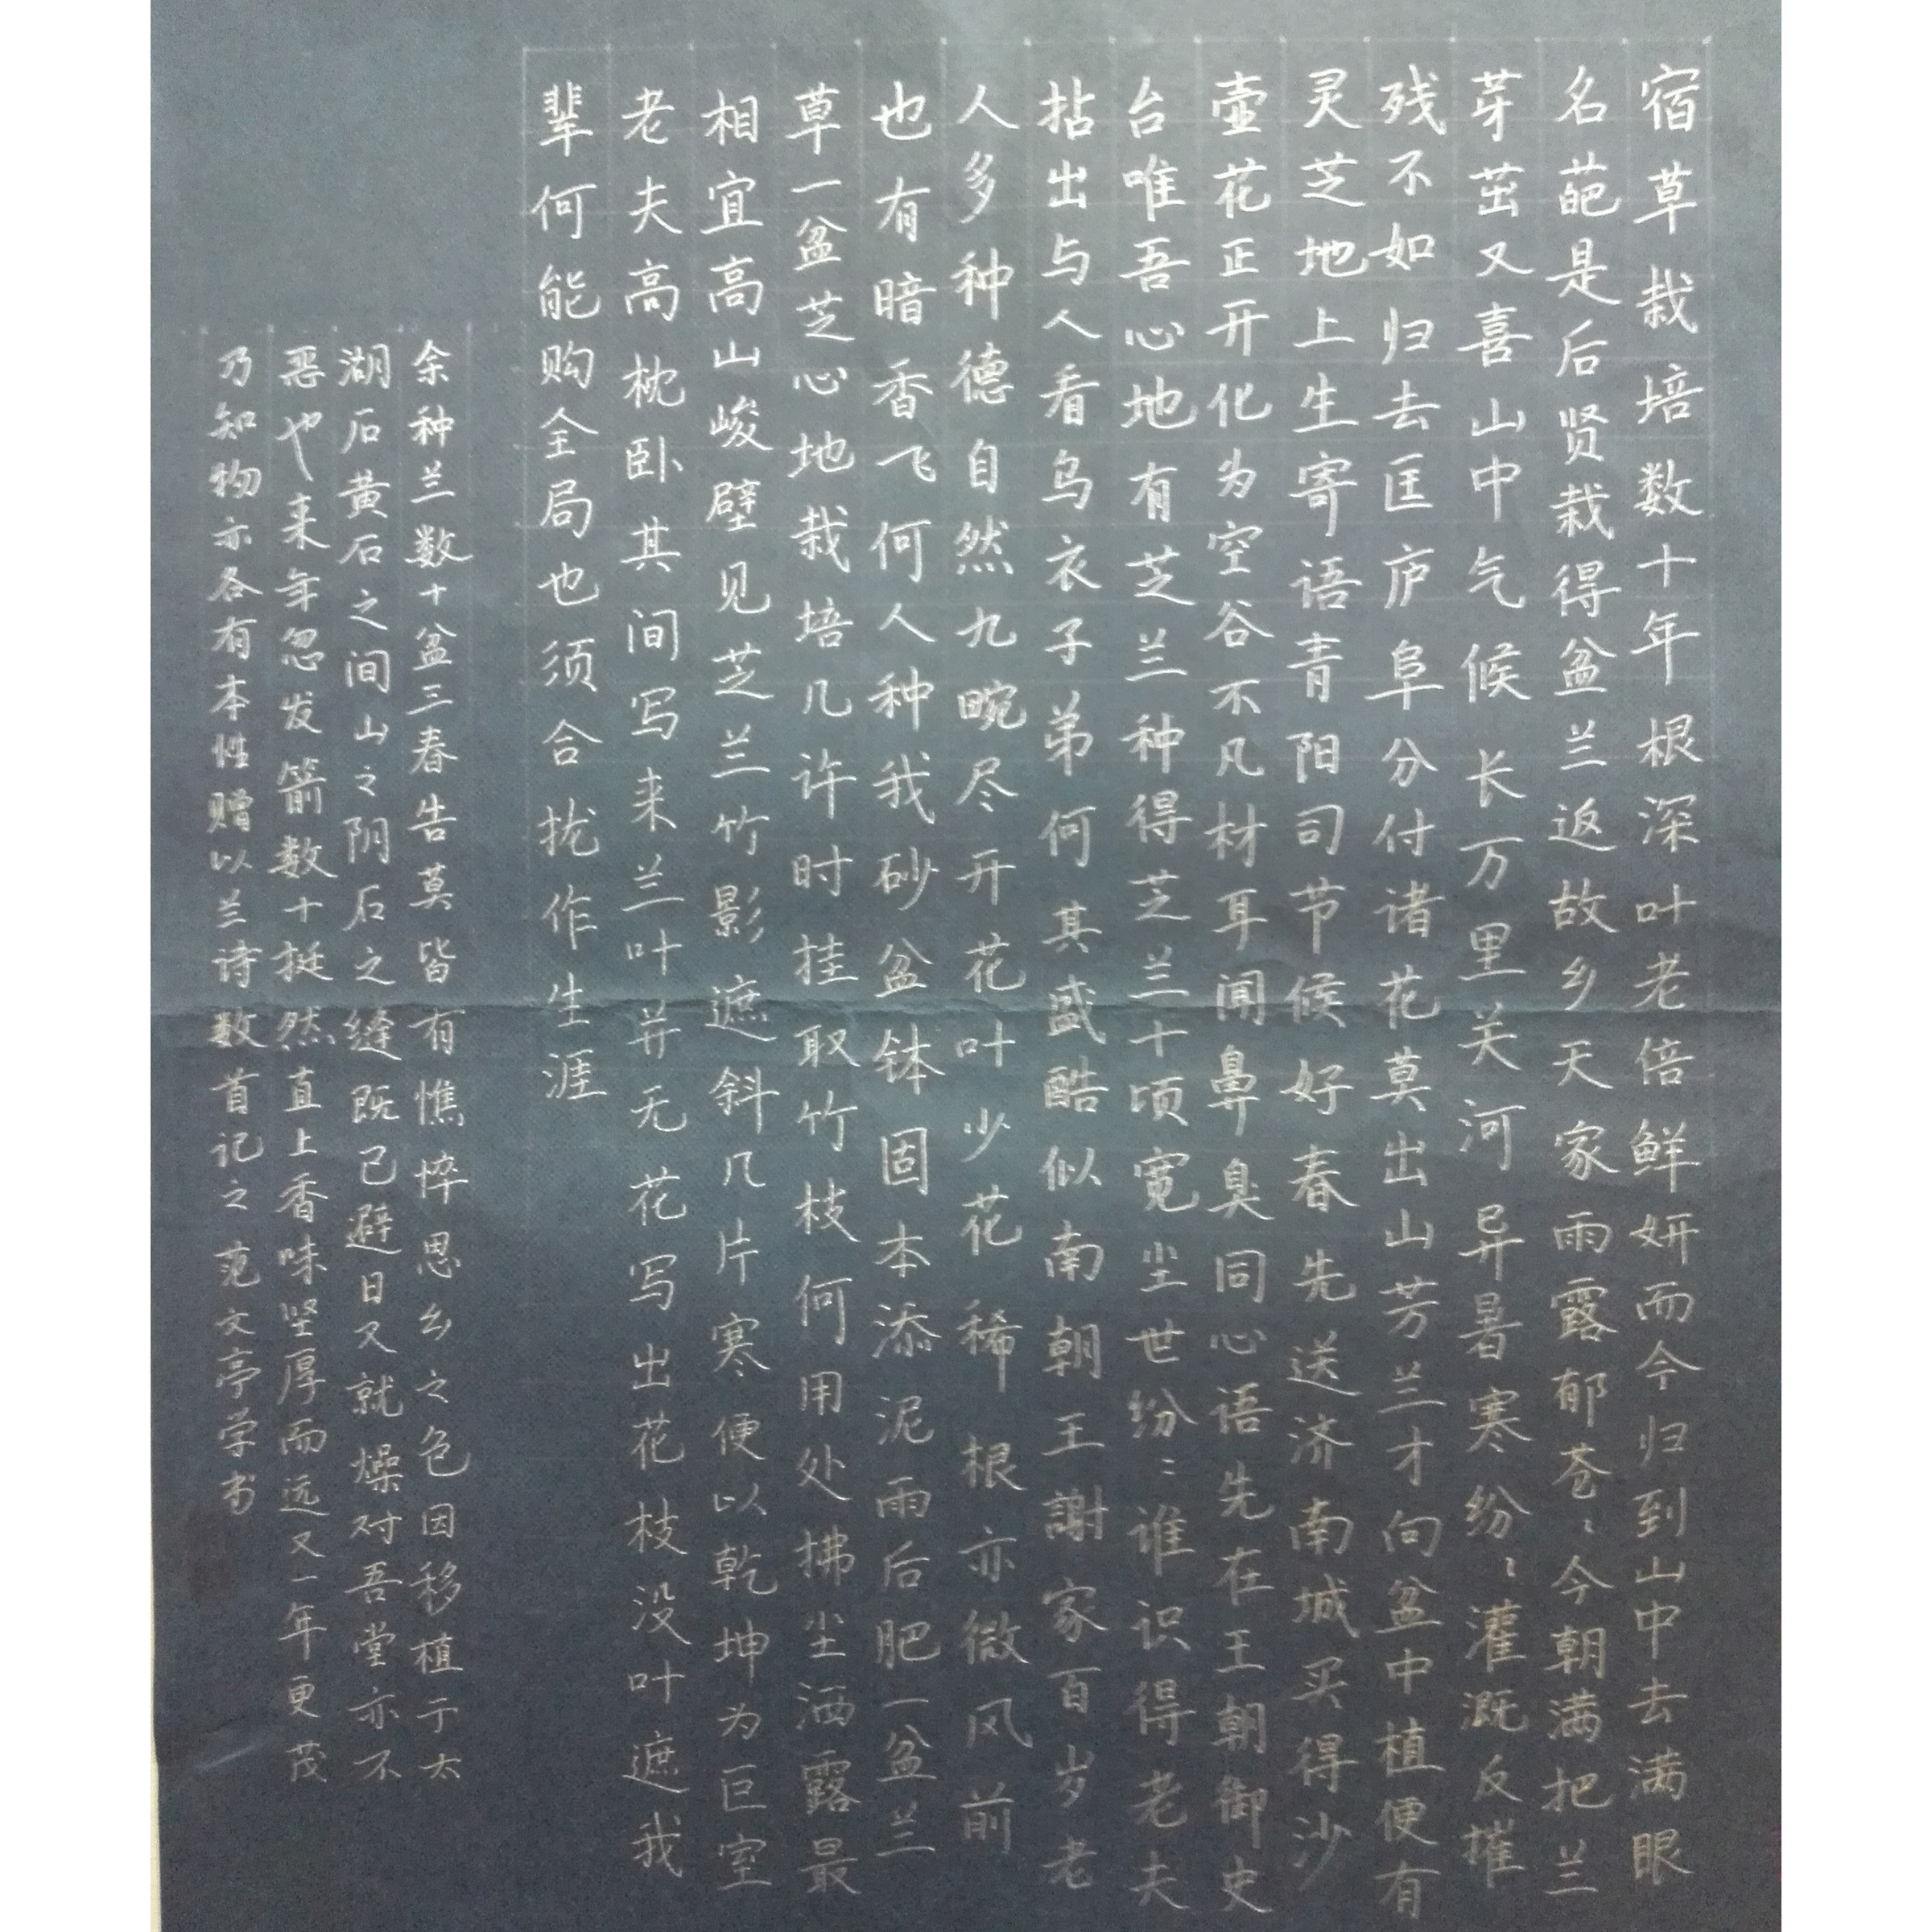 宿草栽培数十年根深叶老倍鲜妍而今归到山中去满眼
名葩是后贤栽得盆兰返故乡天家雨露郁苍〻今朝满把兰
芽茁又喜山中气候长万里关河异暑寒纷〻灌溉反摧
残不如归去匡庐阜分付诸花莫出山芳兰才向盆中植便有
灵芝地上生寄语青阳司节候好春先送济南城买得沙
壶花正开化为空谷不凡材耳闻鼻臭同心语先在王朝御史
台唯吾心地有芝兰种得芝兰十顷宽尘世纷〻谁识得老夫
拈出与人看乌衣子弟何其盛酷似南朝王謝家百岁老
人多种德自然九畹尽开花叶少花稀根亦微风前
也有暗香飞何人种我砂盆钵固本添泥雨后肥一盆兰
草一盆芝心地栽培几许时挂取竹枝何用处拂尘洒露最
相宜高山峻壁见芝兰竹影遮斜几片寒便以乾坤为巨室
老夫高枕卧其间写来兰叶并无花写出花枝没叶遮我
辈何能购全局也须合拢作生涯
余种兰数十盆三春告莫皆有憔悴思乡之色因移植于太
湖石黄石之间山之阴石之缝既已避日又就燥对吾堂亦不
恶也来年忽发箭数十挺然直上香味坚厚而远又一年更茂
乃知物亦各有本性赠以兰诗数首记之范文亭学书